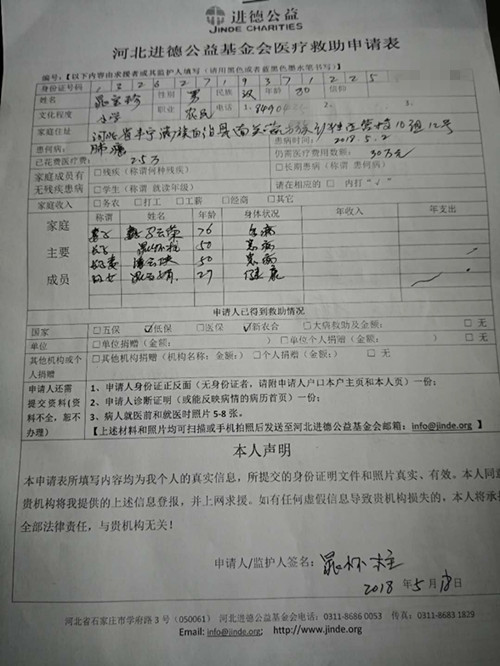 进德公益
JINDE CHARITIES
河北进德公益基金会医疗救助申请表
编号:【以下内容由求援者或其监护人填写(请用黑色或者蓝黑色墨水笔书写)】
身份证号码
姓名 性别 男 民族 汉 年龄 信仰
文化程度 小学 职业 农民 电话
家庭住址 河北省丰宁满族自治县
患何病: 肺癌 患病时间: 2018.5.2
已花费医疗费: 2.5万 仍需医疗费用数额: 30万元
家庭成员有无残疾患病 □残疾(称谓何种残疾) □长期患病(称谓 患何病)
□学生(称谓 就读年级) 请在相应的 □ 内打“√”
家庭收入 □务农 □打工 □工薪 □经商 □其它
家庭主要成员 称谓 姓名 年龄 身体状况 年收入 年支出
妻子 76
50
50
27 健康
申请人已得到救助情况
国家 □五保 ☑低保 □医保 ☑新农合 □大病救助及金额: □ 无
单位 □单位捐赠(金额: ) □单位个人捐赠(金额: ) □ 无
其他机构或个人捐赠 □其他机构捐赠(机构名称: 金额:) □个人捐赠(金额: ) □ 无
申请人还需提交资料(资料不全,恕不办理)
1、申请人身份证正反面(无身份证名,请附申请人户口本户主页和本人页)一份;
2、申请人诊断证明(或能反映病情的病历首页)一份;
3、病人就医前和就医时照片 5-8 张。
【上述材料和照片均可扫描或手机拍照后发送至河北进德公益基金会邮箱: info@jinde.org 】
本人声明
本申请表所填写内容均为我个人的真实信息,所提交的身份证明文件和照片真实、有效。本人同意
贵机构将我提供的上述信息登报,并上网求援。如有任何虚假信息导致贵机构损失的,本人将承担
全部法律责任,与贵机构无关!
申请人/监护人签名: 晁怀柱
2018 年 5 月 日
河北省石家庄市学府路 3 号(050061) 河北进德公益基金会电话: 0311-8686 0053 传真: 0311-8683 1829
Email: info@jinde.org; http://www.jinde.org